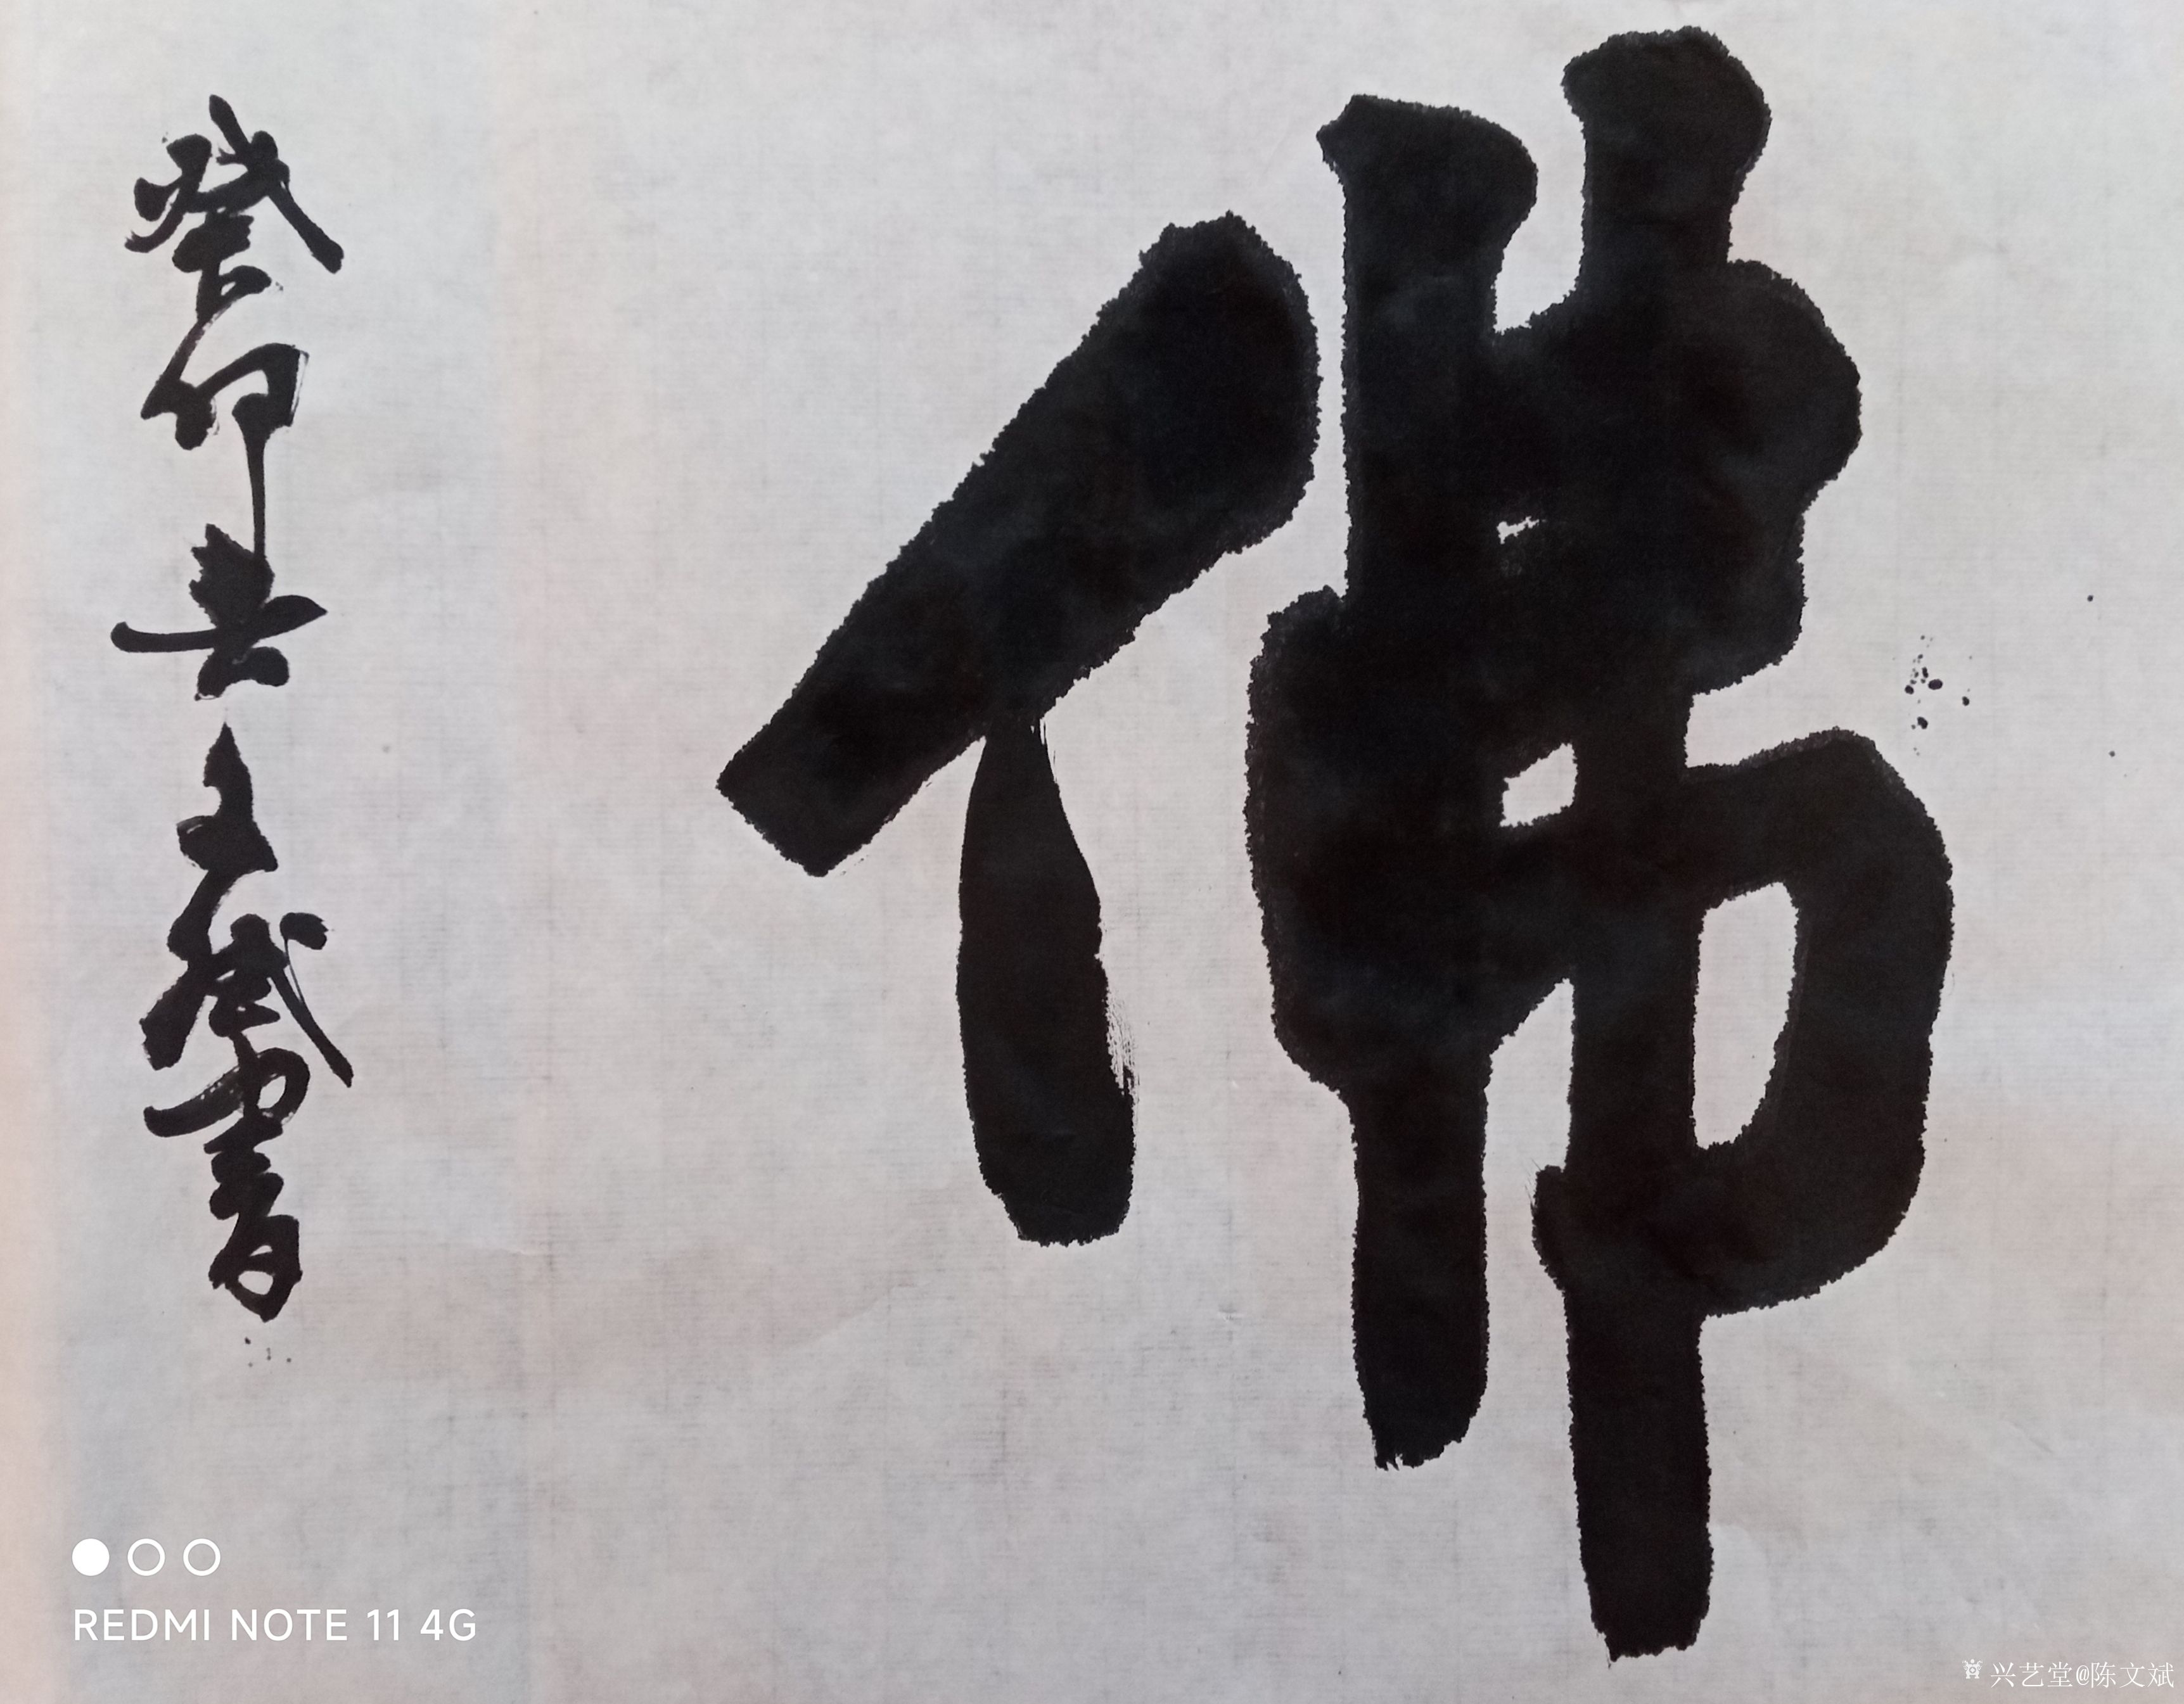 佛
癸卯春文斌书
REDMI NOTE 11 4G
兴艺堂@陈文斌